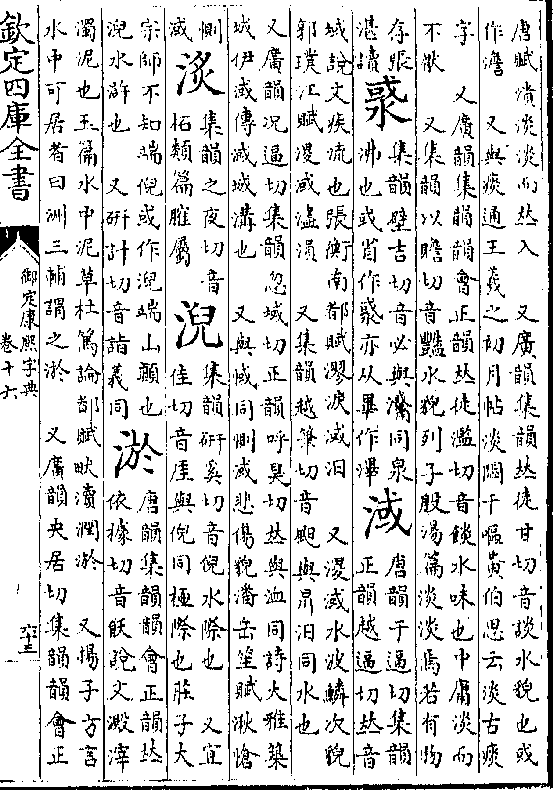 唐賦潰淡淡而𠀤入　又廣韻集韻𠀤徒甘切音談水貌也或
作澹　又與痰通王羲之初月帖淡悶干嘔黃伯思云淡古痰
字　又廣韻集韻韻會正韻𠀤徒濫切音餤水味也中庸淡而
不猒　又集韻以贍切音豔水貌列子殷湯篇淡淡焉若有物
存張
湛讀
集韻壁吉切音必與同泉
沸也或省作亦从畢作滭
淢
唐韻于逼切集韻
正韻越逼切𠀤音
域說文疾流也張衡南都賦漻淚淢汨　又淢水波鱗次貌
郭璞江賦淢濜溳　又集韻越筆切音與汨同水也
又廣韻况逼切集韻忽域切正韻呼臭切𠀤與洫同詩大雅築
城伊淢傳淢城溝也　又與惐同惻淢悲傷貌潘岳笙賦湫愴
惻
淢
集韻之夜切音
柘類篇屬
淣
集韻硏奚切音倪水際也　又宜
佳切音厓與倪同極際也莊子大
宗師不知端倪或作淣端山顚也
淣水滸也　又硏計切音詣義同
淤
唐韻集韻韻會正韻𠀤
依據切音飫說文澱滓
濁泥也玉篇水中泥草杜篤論都賦畎瀆潤淤　又揚子方言
水中可居者曰洲三輔謂之淤　又廣韻央居切集韻韻會正
欽定四庫全書
御定康熙字典
卷十六